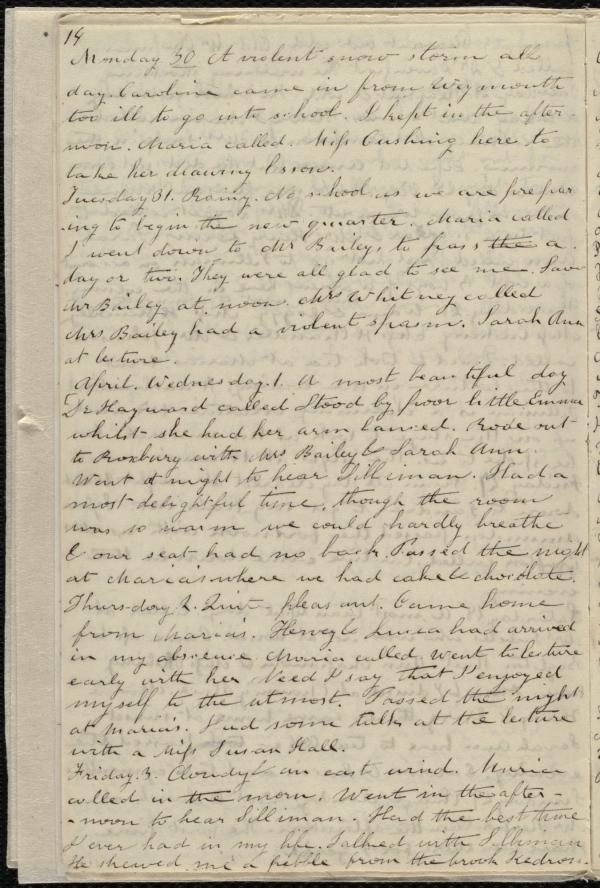 14
Monday 30 A violent snow storm all
day. Caroline came in from Weymouth
too ill to go into school. I kept in the after-
noon. Maria called. Miss Cushing here to
take her drawing lesson.
Tuesday 31. Rainy. No school as we are prepar
-ing to begin the new quarter. Maria called
I went down to Mr Baileys to pass the a
day or two. They were all glad to see me. Saw
Mr Bailey at noon. Mrs Whitney called
Mrs Bailey had a violent spasm. Sarah Ann
at lecture.
April. Wednesday. 1. A most beautiful day
Dr Hayward called Stood by poor little Emma
whilst she had her arm lanced. Rode out
to Roxbury with Mrs Bailey & Sarah Ann.
Went at night to hear Silliman. Had a
most delightful time, though the room
was so warm we could hardly breathe
& our seat had no back. Passed the night
at Maria's where we had cake & chocolate.
Thursday 2. Quite pleasant. Came home
from Maria's. Hervey & Luisa had arrived
in my absence. Maria called. Went to lecture
early with her Need I say that I enjoyed
myself to the utmost. Passed the night
at Maria's. Had some talk at the lecture
with a Miss Susan Hall.
Friday. 3. Cloudy & an east wind. Maria
called in the morn. Went in the after-
-noon to hear Silliman. Had the best time
I ever had in my life. Talked with Silliman
He shewed me a pebble from the brook Kedron.